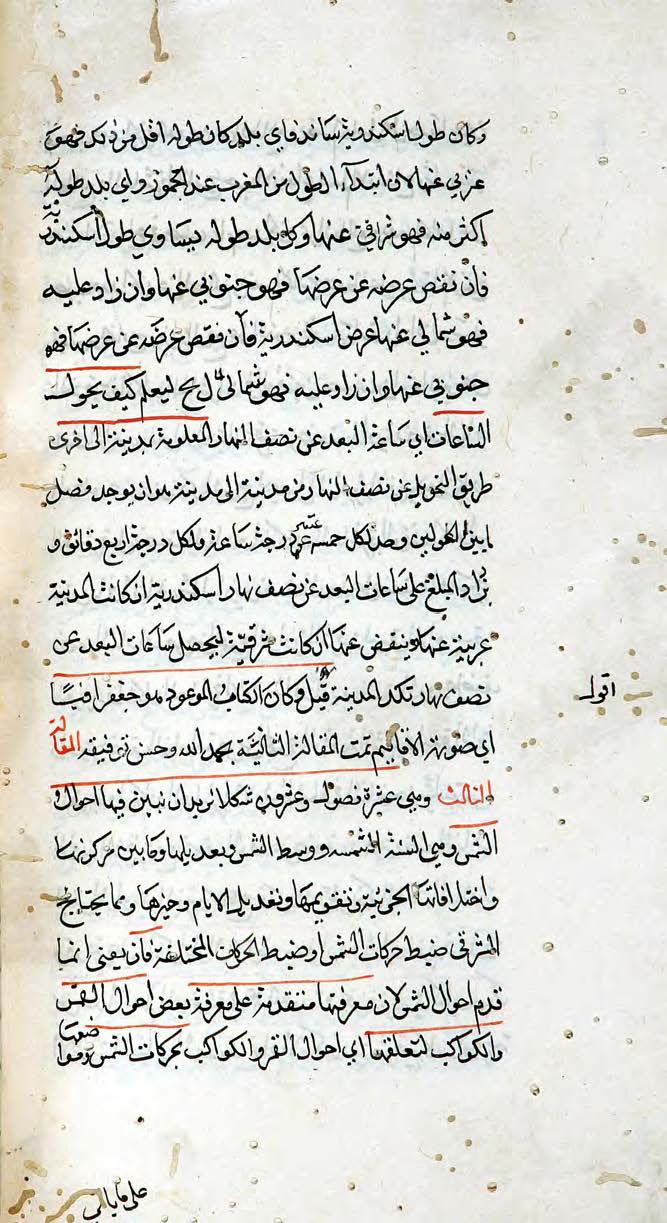 وكان طول اسكندرية ساند فاي بلد كان طوله اقل من ذلك فهو
غربي عنها لان ابتداء الطول من المغرب عند الجمهور واي بلد طوله
اكثر منه فهو شرقي عنها وكل بلد طوله يساوي طول اسكندرية
فان نقص عرضه عن عرضها فهو جنوبي عنها وان زاد عليه
فهو شمالي عنها عرض اسكندرية فان نقص عرضه عن عرضها فهو
جنوبي عنها وان زاد عليه فهو شمالي ليعلم كيف يحول
الساعات اي ساعة البعد عن نصف النهار المعلومة بمدينة الى اخرى
طريق التحويل عن نصف النهار من مدينة الى مدينة هو ان يوجد فضل
ما بين الطولين وحد لكل خمسة عشر درجة ساعة ولكل درجة اربع دقائق و
يزاد المبلغ على ساعات البعد عن نصف نهار اسكندرية ان كانت المدينة
غربية عنها وينقص عنها ان كانت شرقية ليحصل ساعات البعد عن
نصف نهار تلك المدينة قيل وكان الكتاب الموعود هو جغرافيا
اقول
اي صورة الاقاليم تمت المقالة الثانية بحمد الله وحسن توفيقه المقالة
الثالث وهي عشرة فصول وعشرون شكلا نريد ان نبين فيها احوال
الشمس وهي السنة الشمسية ووسط الشمس وبعد يلها وما بين مركزيها
واختلافاتها الجزئية وتقويمها وتعديل الايام وحيزها ومما يحتاج
في ضبط حركات الشمس او ضبط الحركات المختلفة فان يعنى انما
قدم احوال الشمس لان معرفتها متقدمة على معرفة بعض احوال القمر
والكواكب لتعلقها اي احوال القمر والكواكب بحركات الشمس ومواضعها
على ما ياتي